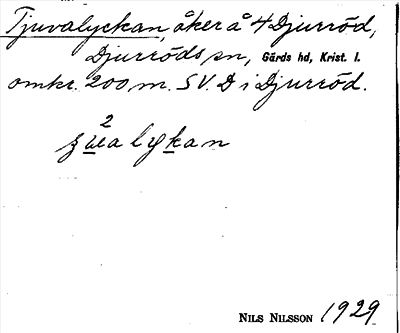 Tjuvalyckan, åker å 4 Djurröd,
Djurröds sn, Gärds hd, Krist. l.
omkr. 200 m. SV. D i Djurröd.
2
lykan
NILS NILSSON 1929